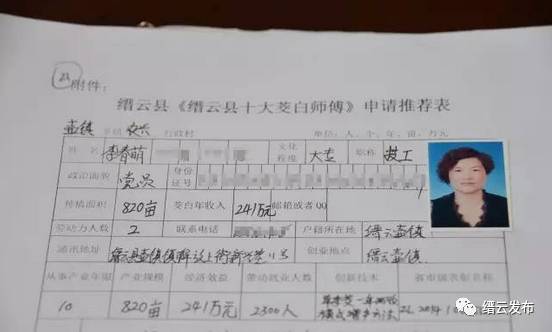 22
附件：
缙云县《缙云县十大茭白师傅》申请推荐表
壶镇 行政村 单位：人、个、年、亩、万元
姓名 李春萌 文化程度 大专 职称 技工
政治面貌 党员 身份证号
种植面积 820亩 茭白年收入 241万元 邮箱或者QQ
劳动力人数 2 联系电话 户籍所在地 缙云壶镇
通讯地址 缙云县壶镇镇解放上街 号 创业地点 缙云壶镇
从事产业年限 产业规模 经济效益 劳动就业人数 创新技术 省市级表彰名称
10 820亩 241万元 2300人 单季茭一年两收
缙云发布